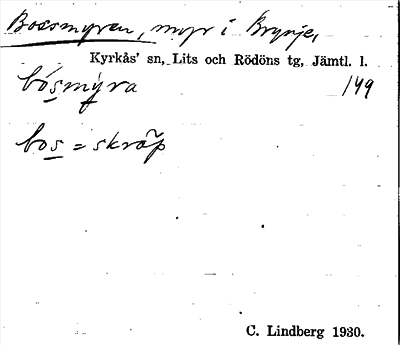 Bossmyren, myr i Brynje,
Kyrkås' sn, Lits och Rödöns tg, Jämtl. l.
bósmýra 149
bos = skräp
C. Lindberg 1930.